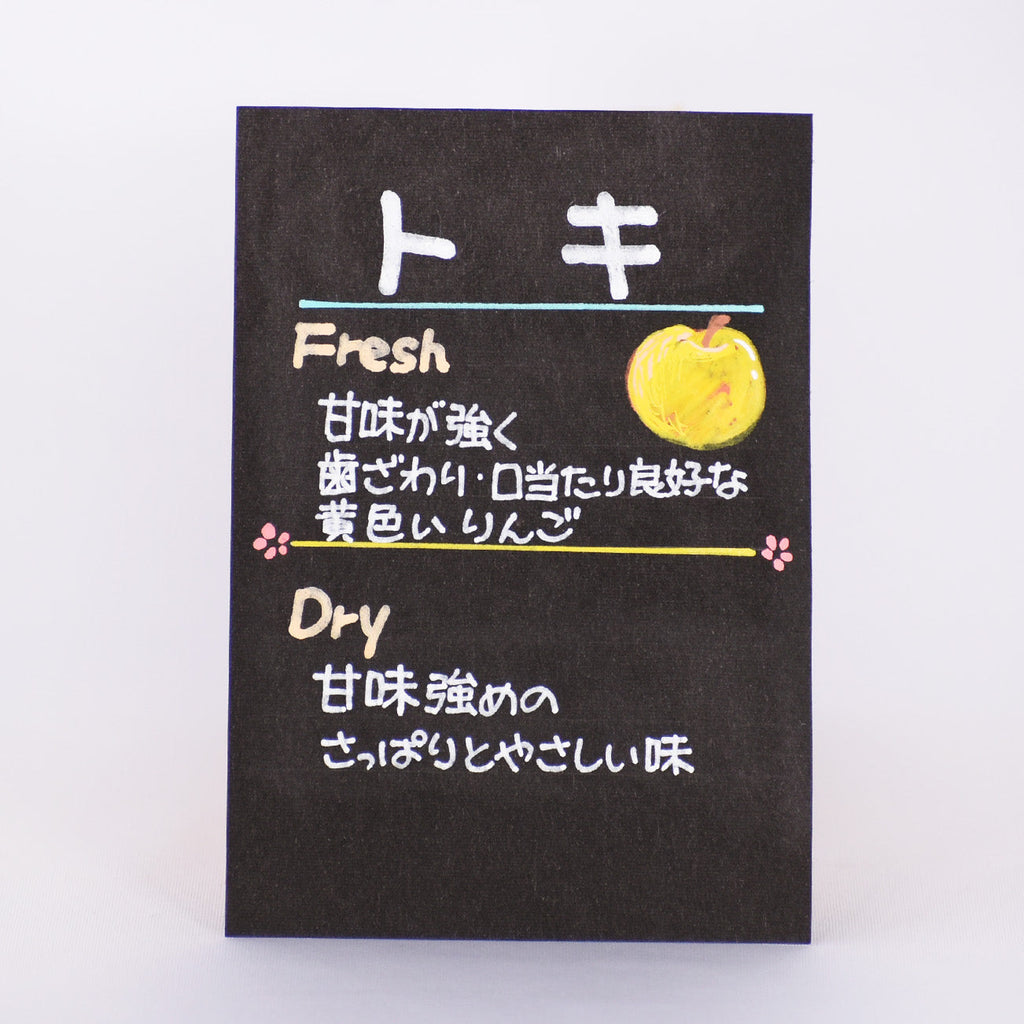 トキ
Fresh
甘味が強く
歯ざわり・口当たり良好な
黄色いりんご
Dry
甘味強めの
さっぱりとやさしい味